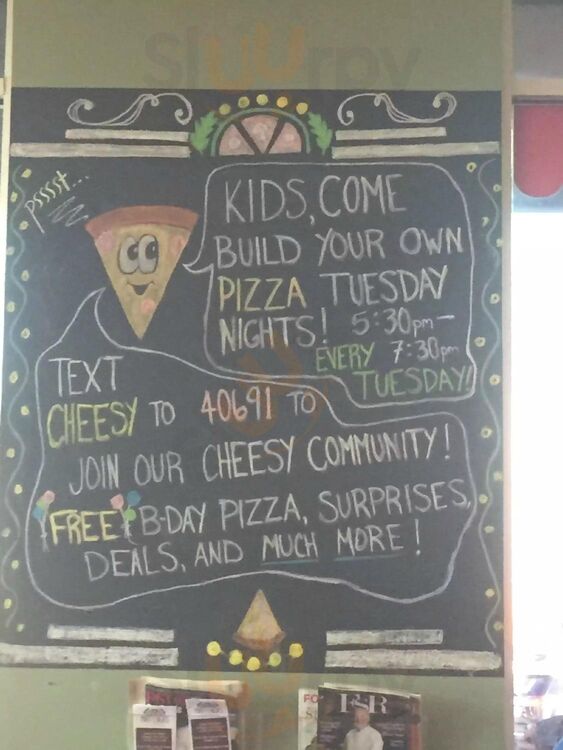 Slurpy
psssst...
KIDS, COME
BUILD YOUR OWN
PIZZA TUESDAY
NIGHTS! 5:30pm-
EVERY 7:30pm
TUESDAY!
TEXT
CHEESY TO 40691 TO
JOIN OUR CHEESY COMMUNITY!
FREE B-DAY PIZZA, SURPRISES,
DEALS, AND MUCH MORE!